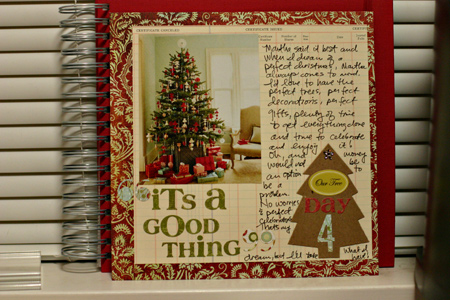 CERTIFICATE CANCELED
CERTIFICATE ISSUED
Martha said it best and
when I dream of a
perfect christmas, Martha
always comes to mind.
I'd love to have the
perfect trees, perfect
decorations, perfect
gifts, plenty of time
to get everything done
and time to celebrate
and enjoy it!
Oh, and money
would not be
an option to
be a
problem.
No worries
a perfect
celebration
That's my
dream, but I'll take
what I
have!
iTs A
GOOD
THiNG
One Tree
Day
4